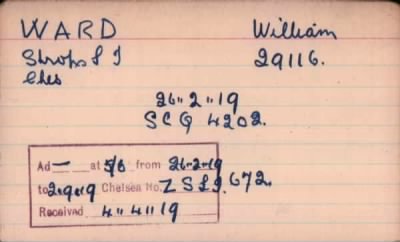 WARD William
Shrops L I 29116.
Ches
26"2"19
SCQ 4202.
Ad— at 5/6 from 26"2"19
to 2"9"19 Chelsea No. Z SL9.672.
Received 4"4"19